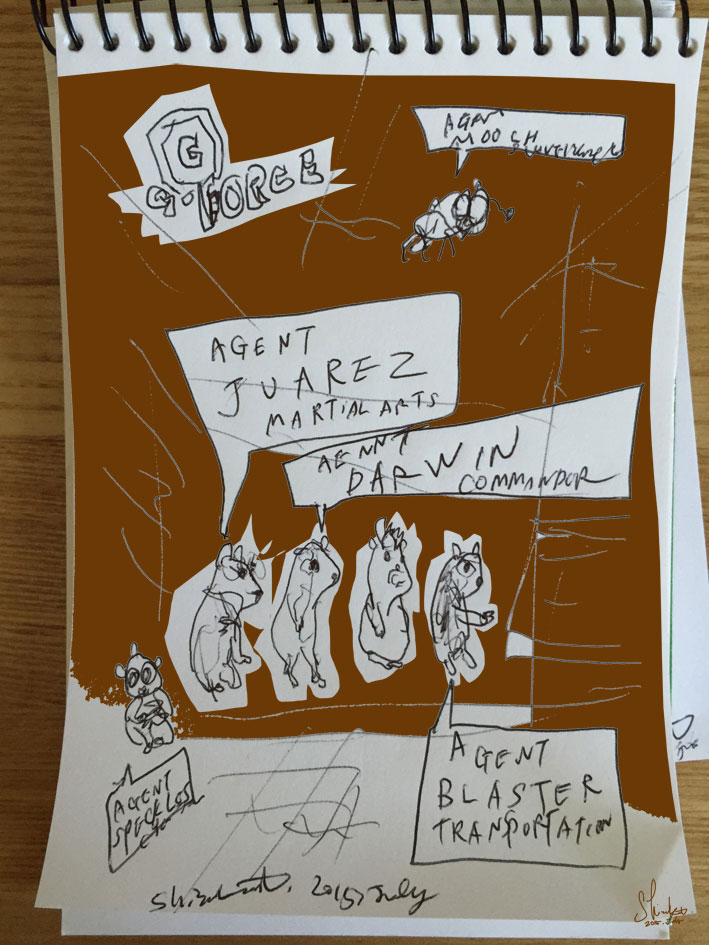 G
G-FORCE
AGEN
MOOCH
AGENT
JUAREZ
MARTIAL ARTS
AGENNT
DARWIN
COMMANDER
AGENT
SPECKLES
AGENT
BLASTER
TRANPORTATION
2015, July